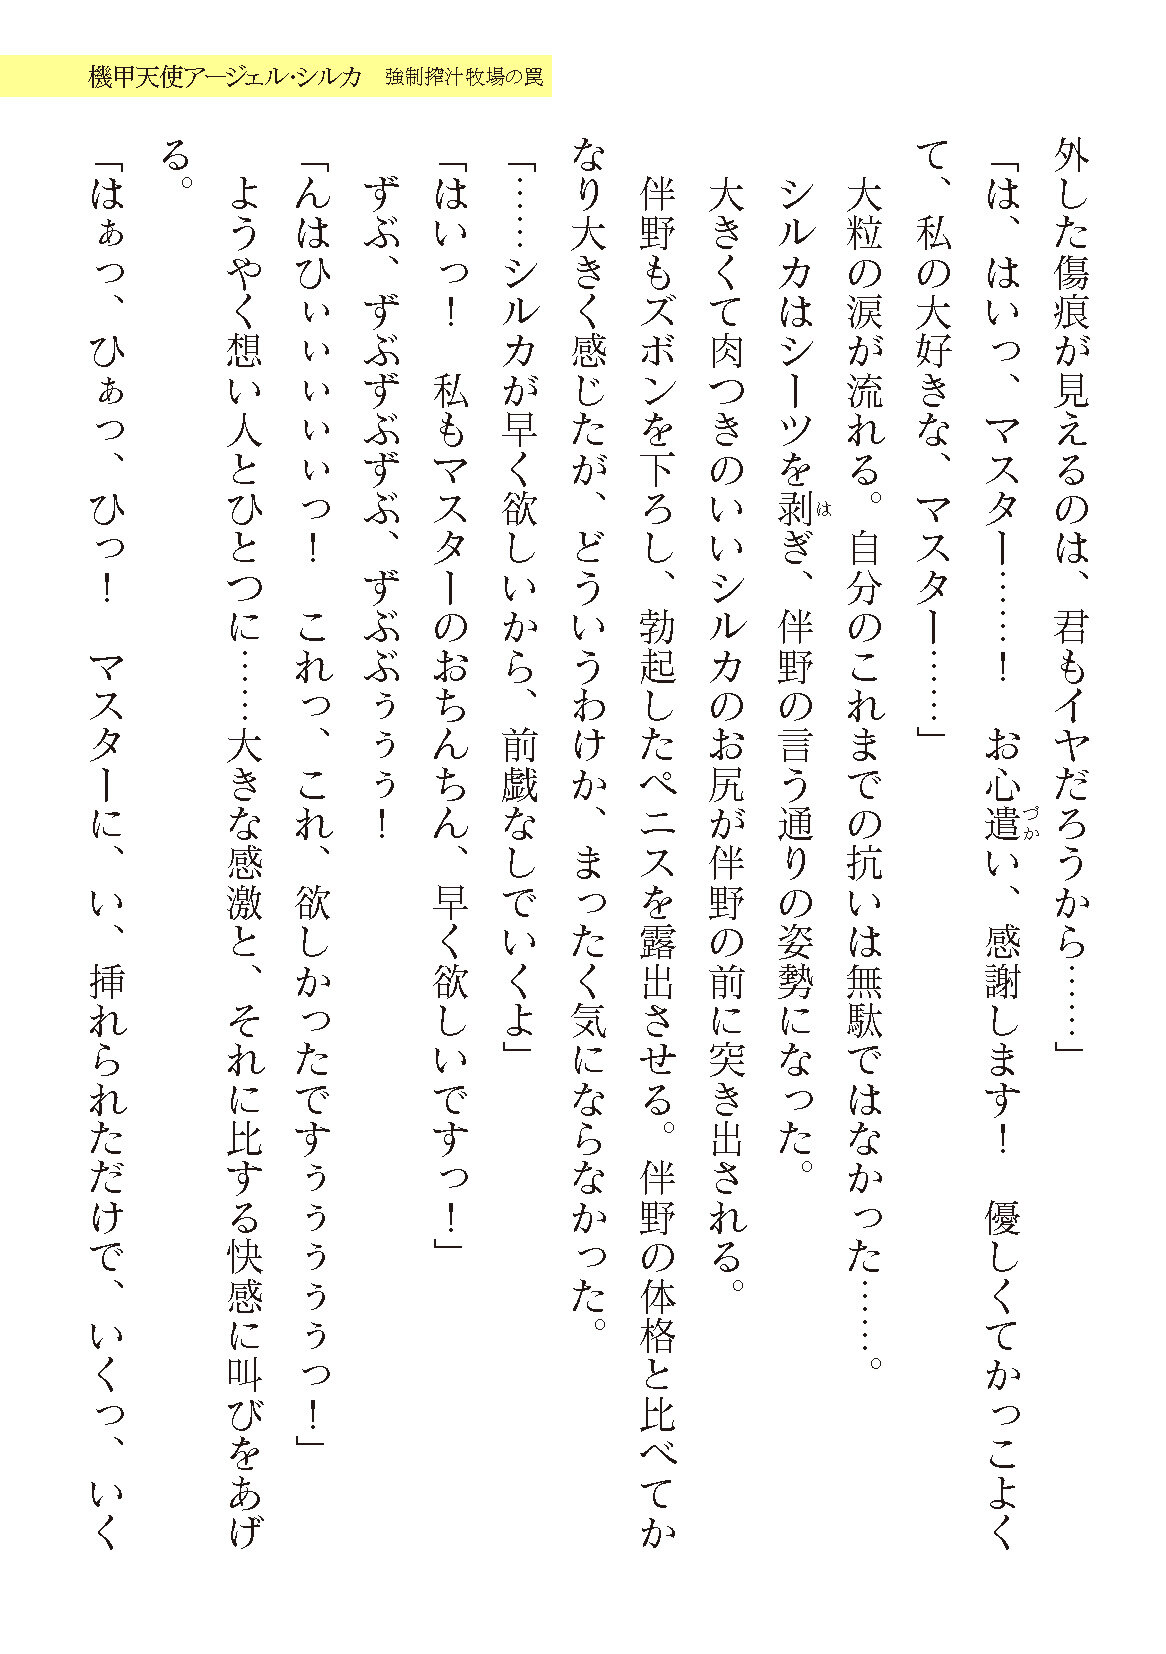 機甲天使アージェル・シルカ　強制搾汁牧場の罠
外した傷痕が見えるのは、君もイヤだろうから……」
「は、はいっ、マスター……！　お心遣い、感謝します！　優しくてかっこよく
て、私の大好きな、マスター……」
　大粒の涙が流れる。自分のこれまでの抗いは無駄ではなかった……。
　シルカはシーツを剥ぎ、伴野の言う通りの姿勢になった。
　大きくて肉つきのいいシルカのお尻が伴野の前に突き出される。
　伴野もズボンを下ろし、勃起したペニスを露出させる。伴野の体格と比べてか
なり大きく感じたが、どういうわけか、まったく気にならなかった。
「……シルカが早く欲しいから、前戯なしでいくよ」
「はいっ！　私もマスターのおちんちん、早く欲しいですっ！」
　ずぶ、ずぶずぶずぶ、ずぶぶぅぅぅ！
「んはひぃぃぃぃぃっ！　これっ、これ、欲しかったですぅぅぅぅぅっ！」
　ようやく想い人とひとつに……大きな感激と、それに比する快感に叫びをあげ
る。
「はぁっ、ひぁっ、ひっ！　マスターに、い、挿れられただけで、いくっ、いく